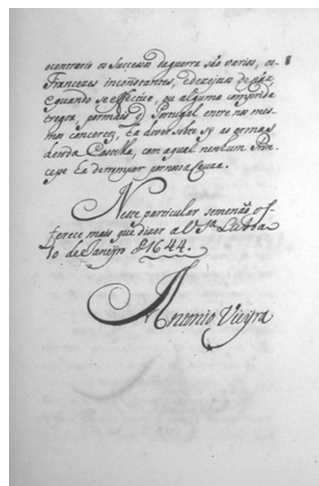 ocontrario os Successos daguerra são varios, os 8
Francezes inconstantes, edezejozos de páz
equando se effectue, ou alguma comprida
tregoa, por mais q̃ Portugal entre nos mes-
mos concertos, ha dever sobre sy as armas
detoda Castella, com aqual nenhum Prin-
cepe ha deromper por nossa Cauza.
Neste particular semenão of-
ferece mais que dizer a V. Sra. Lisboa
10 de Janeyro de 1644.
Antonio Vieyra